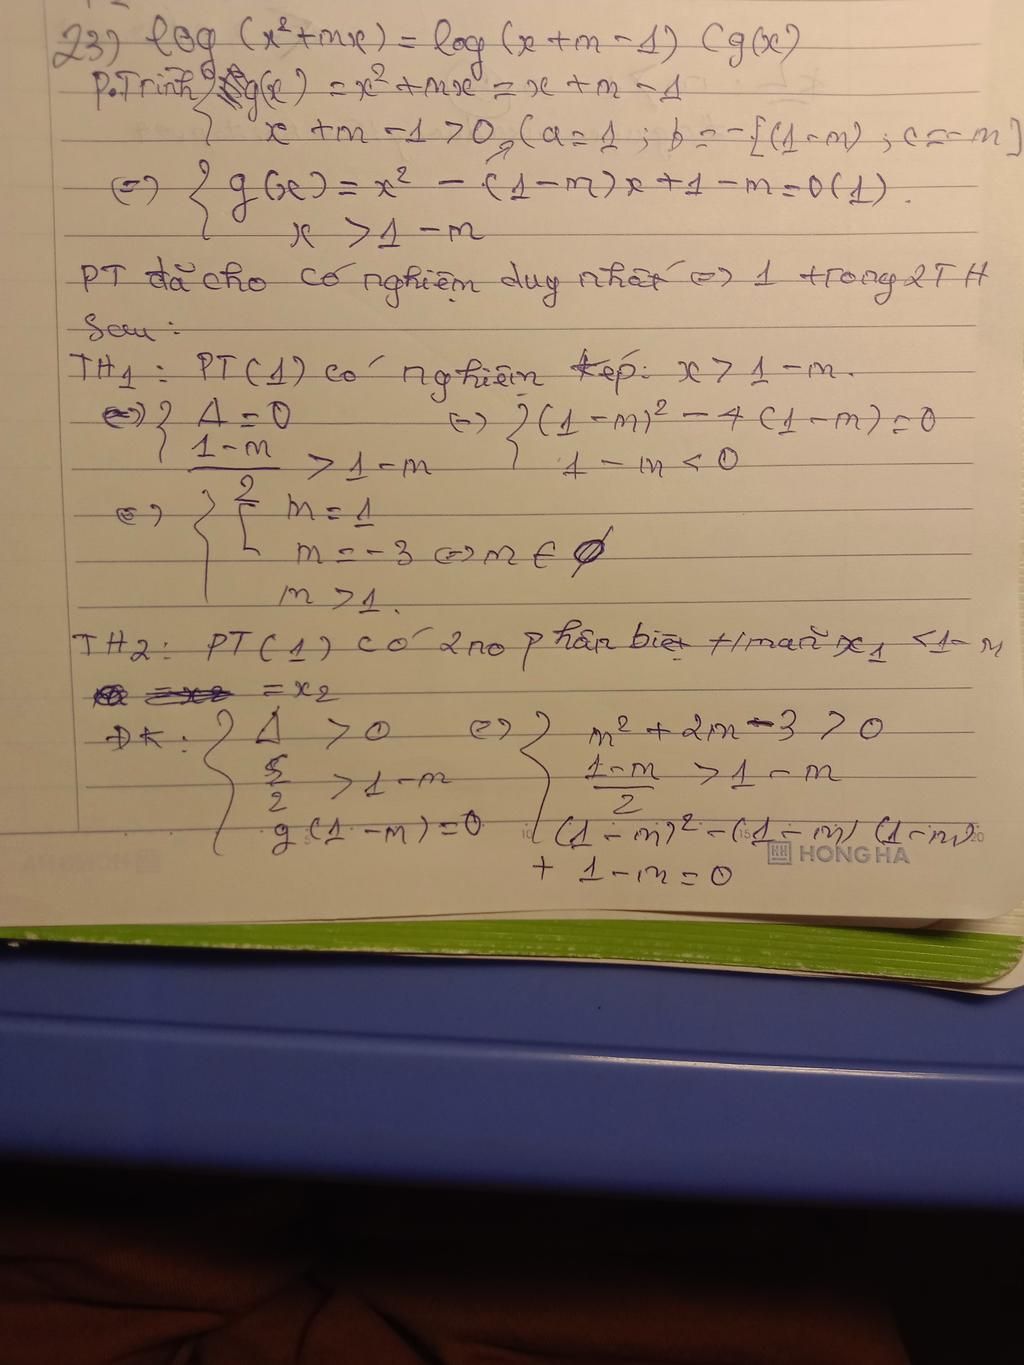 23) log (x² + mx) = log (x + m - 1) Cg(x)
P.Trình g(x) = x² + mx = x + m - 1
x + m - 1 > 0, (a = 1 ; b = -[(1 - m) ; c = - m]
⇔ { g(x) = x² - (1 - m)x + 1 - m = 0 (1).
x > 1 - m
PT đã cho có nghiệm duy nhất ⇔ 1 trong 2 TH
Sau :
TH1 : PT(1) có nghiệm kép: x > 1 - m.
⇔ { Δ = 0 ⇔ { (1 - m)² - 4 (1 - m) = 0
(1 - m)/2 > 1 - m 1 - m < 0
⇔ { [ m = 1
m = - 3 ⇔ m ∈ ∅
m > 1.
TH2 : PT(1) có 2 no phân biệt t/mãn x₁ < 1 - m
= x₂
ĐK : { Δ > 0 ⇔ { m² + 2m - 3 > 0
S/2 > 1 - m (1 - m)/2 > 1 - m
g (1 - m) = 0 (1 - m)² - (1 - m) (1 - m)
+ 1 - m = 0
5 10 15 20
HONG HA